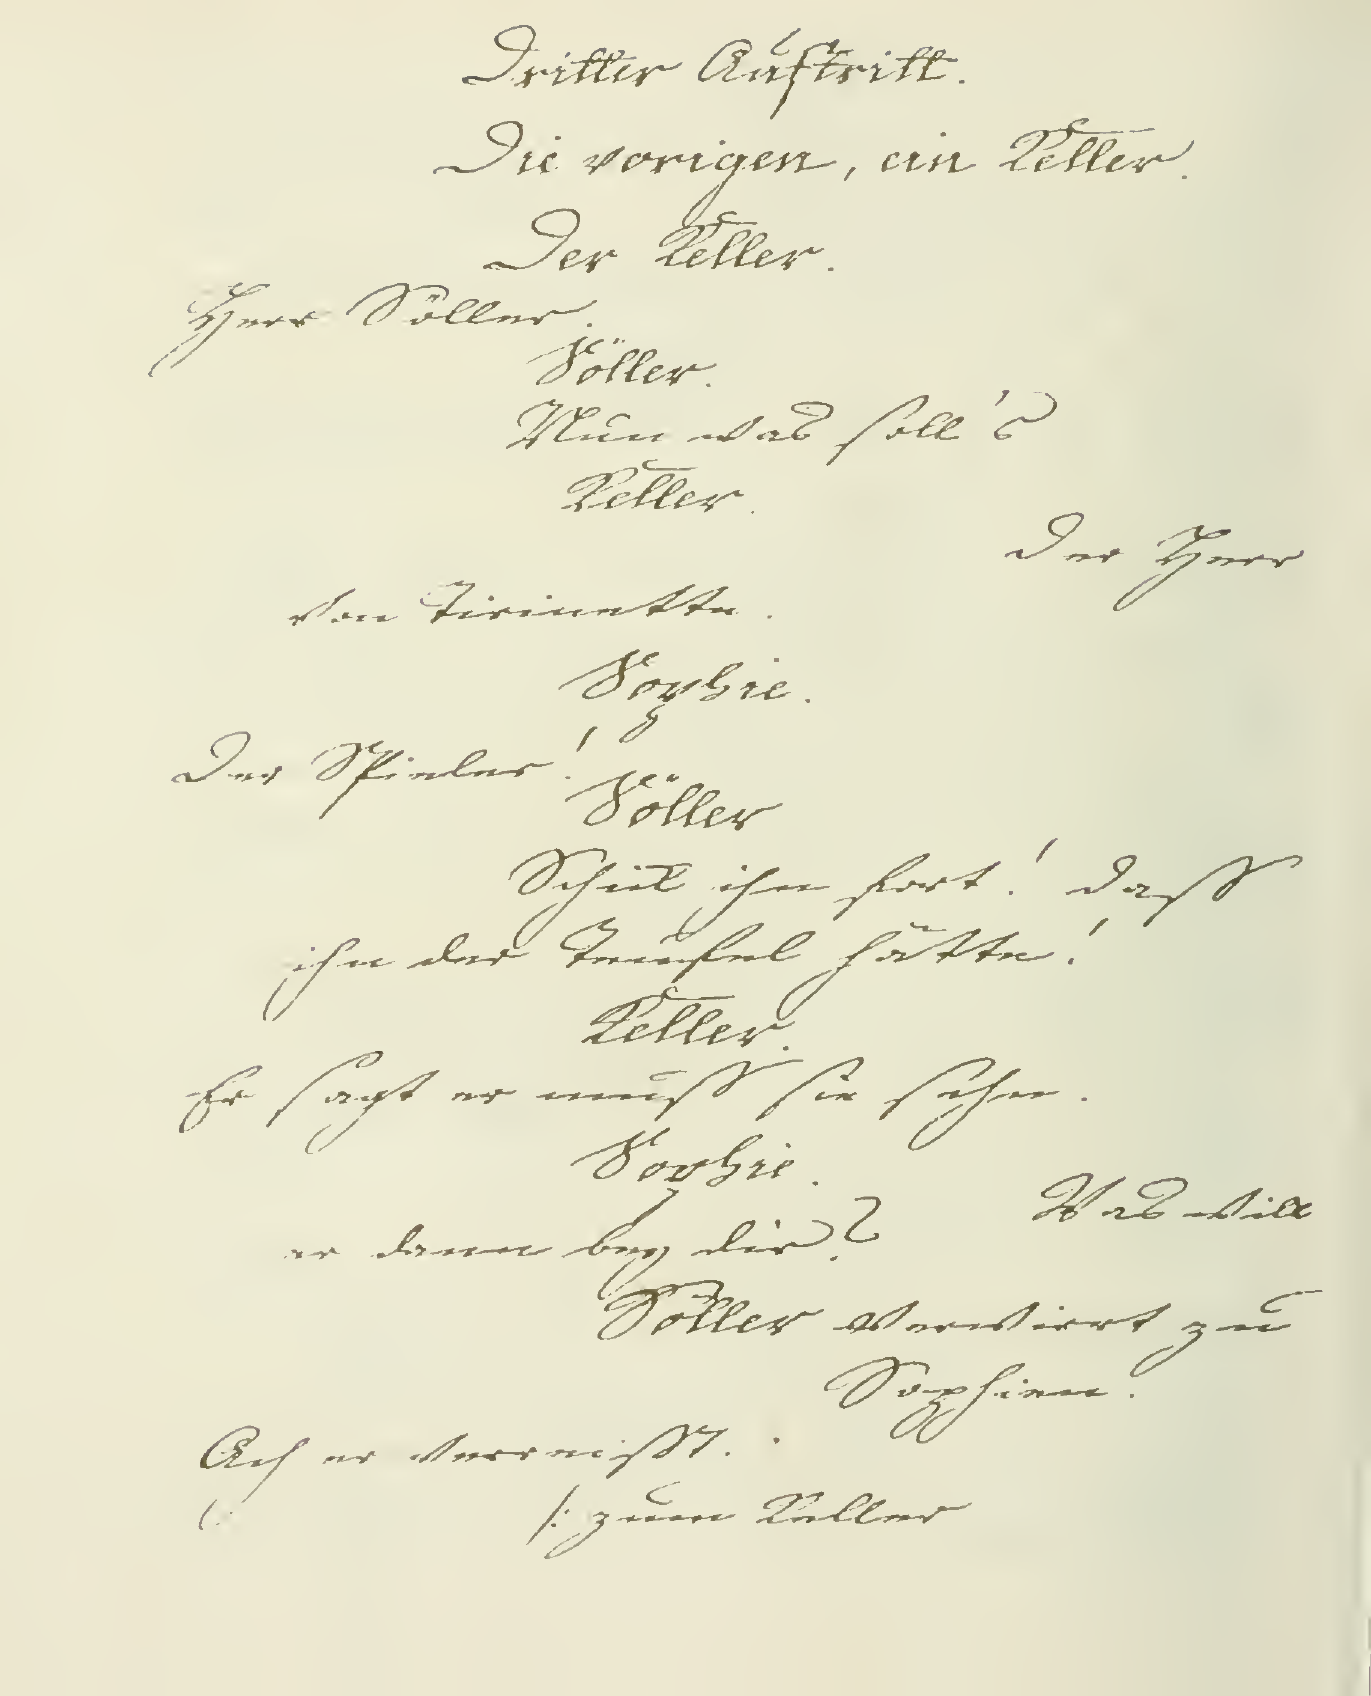 Dritter Auftritt.
Die vorigen, ein Keller.
Der Keller.
Herr Söller.
Söller.
Nun was soll's?
Keller.
Der Herr
von Tirinette.
Sophie.
Der Spieler!
Söller
Schick ihn fort! Dass
ihn der Teufel hätte!
Keller.
Er sagt er muss sie sehn.
Sophie.
Was will
er dann bey dir?
Söller verwirrt zu
Sophien.
Ach er verreisst.
/: zum Keller